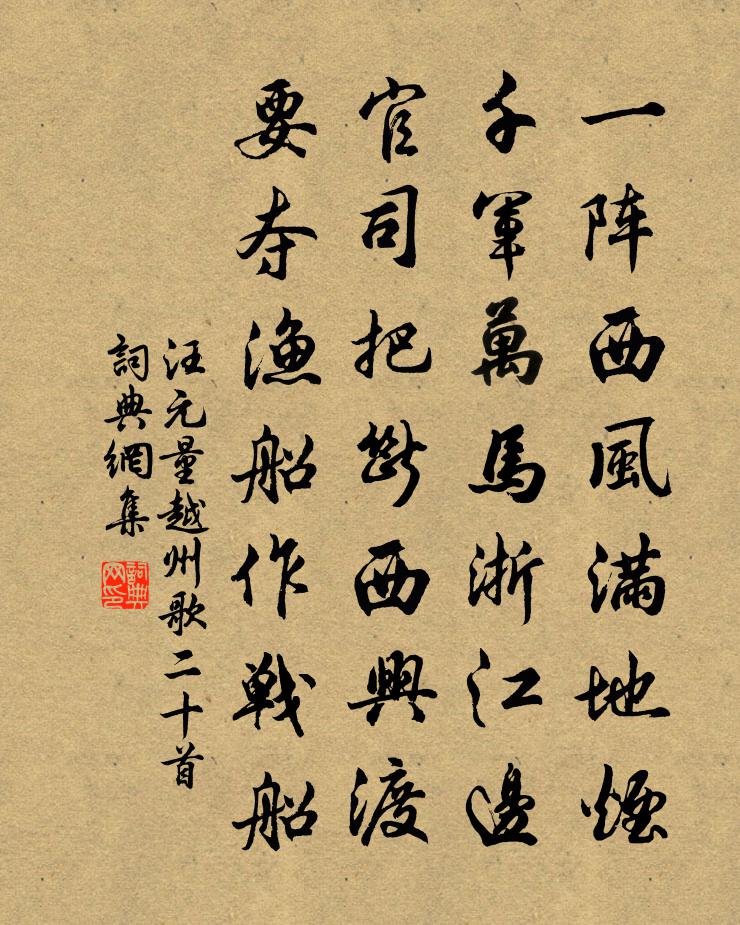 一阵西風满地煙
千軍萬馬浙江邊
官司把斷西興渡
要夺漁船作戦船
汪元量越州歌二十首
詞典網集
詞典网印